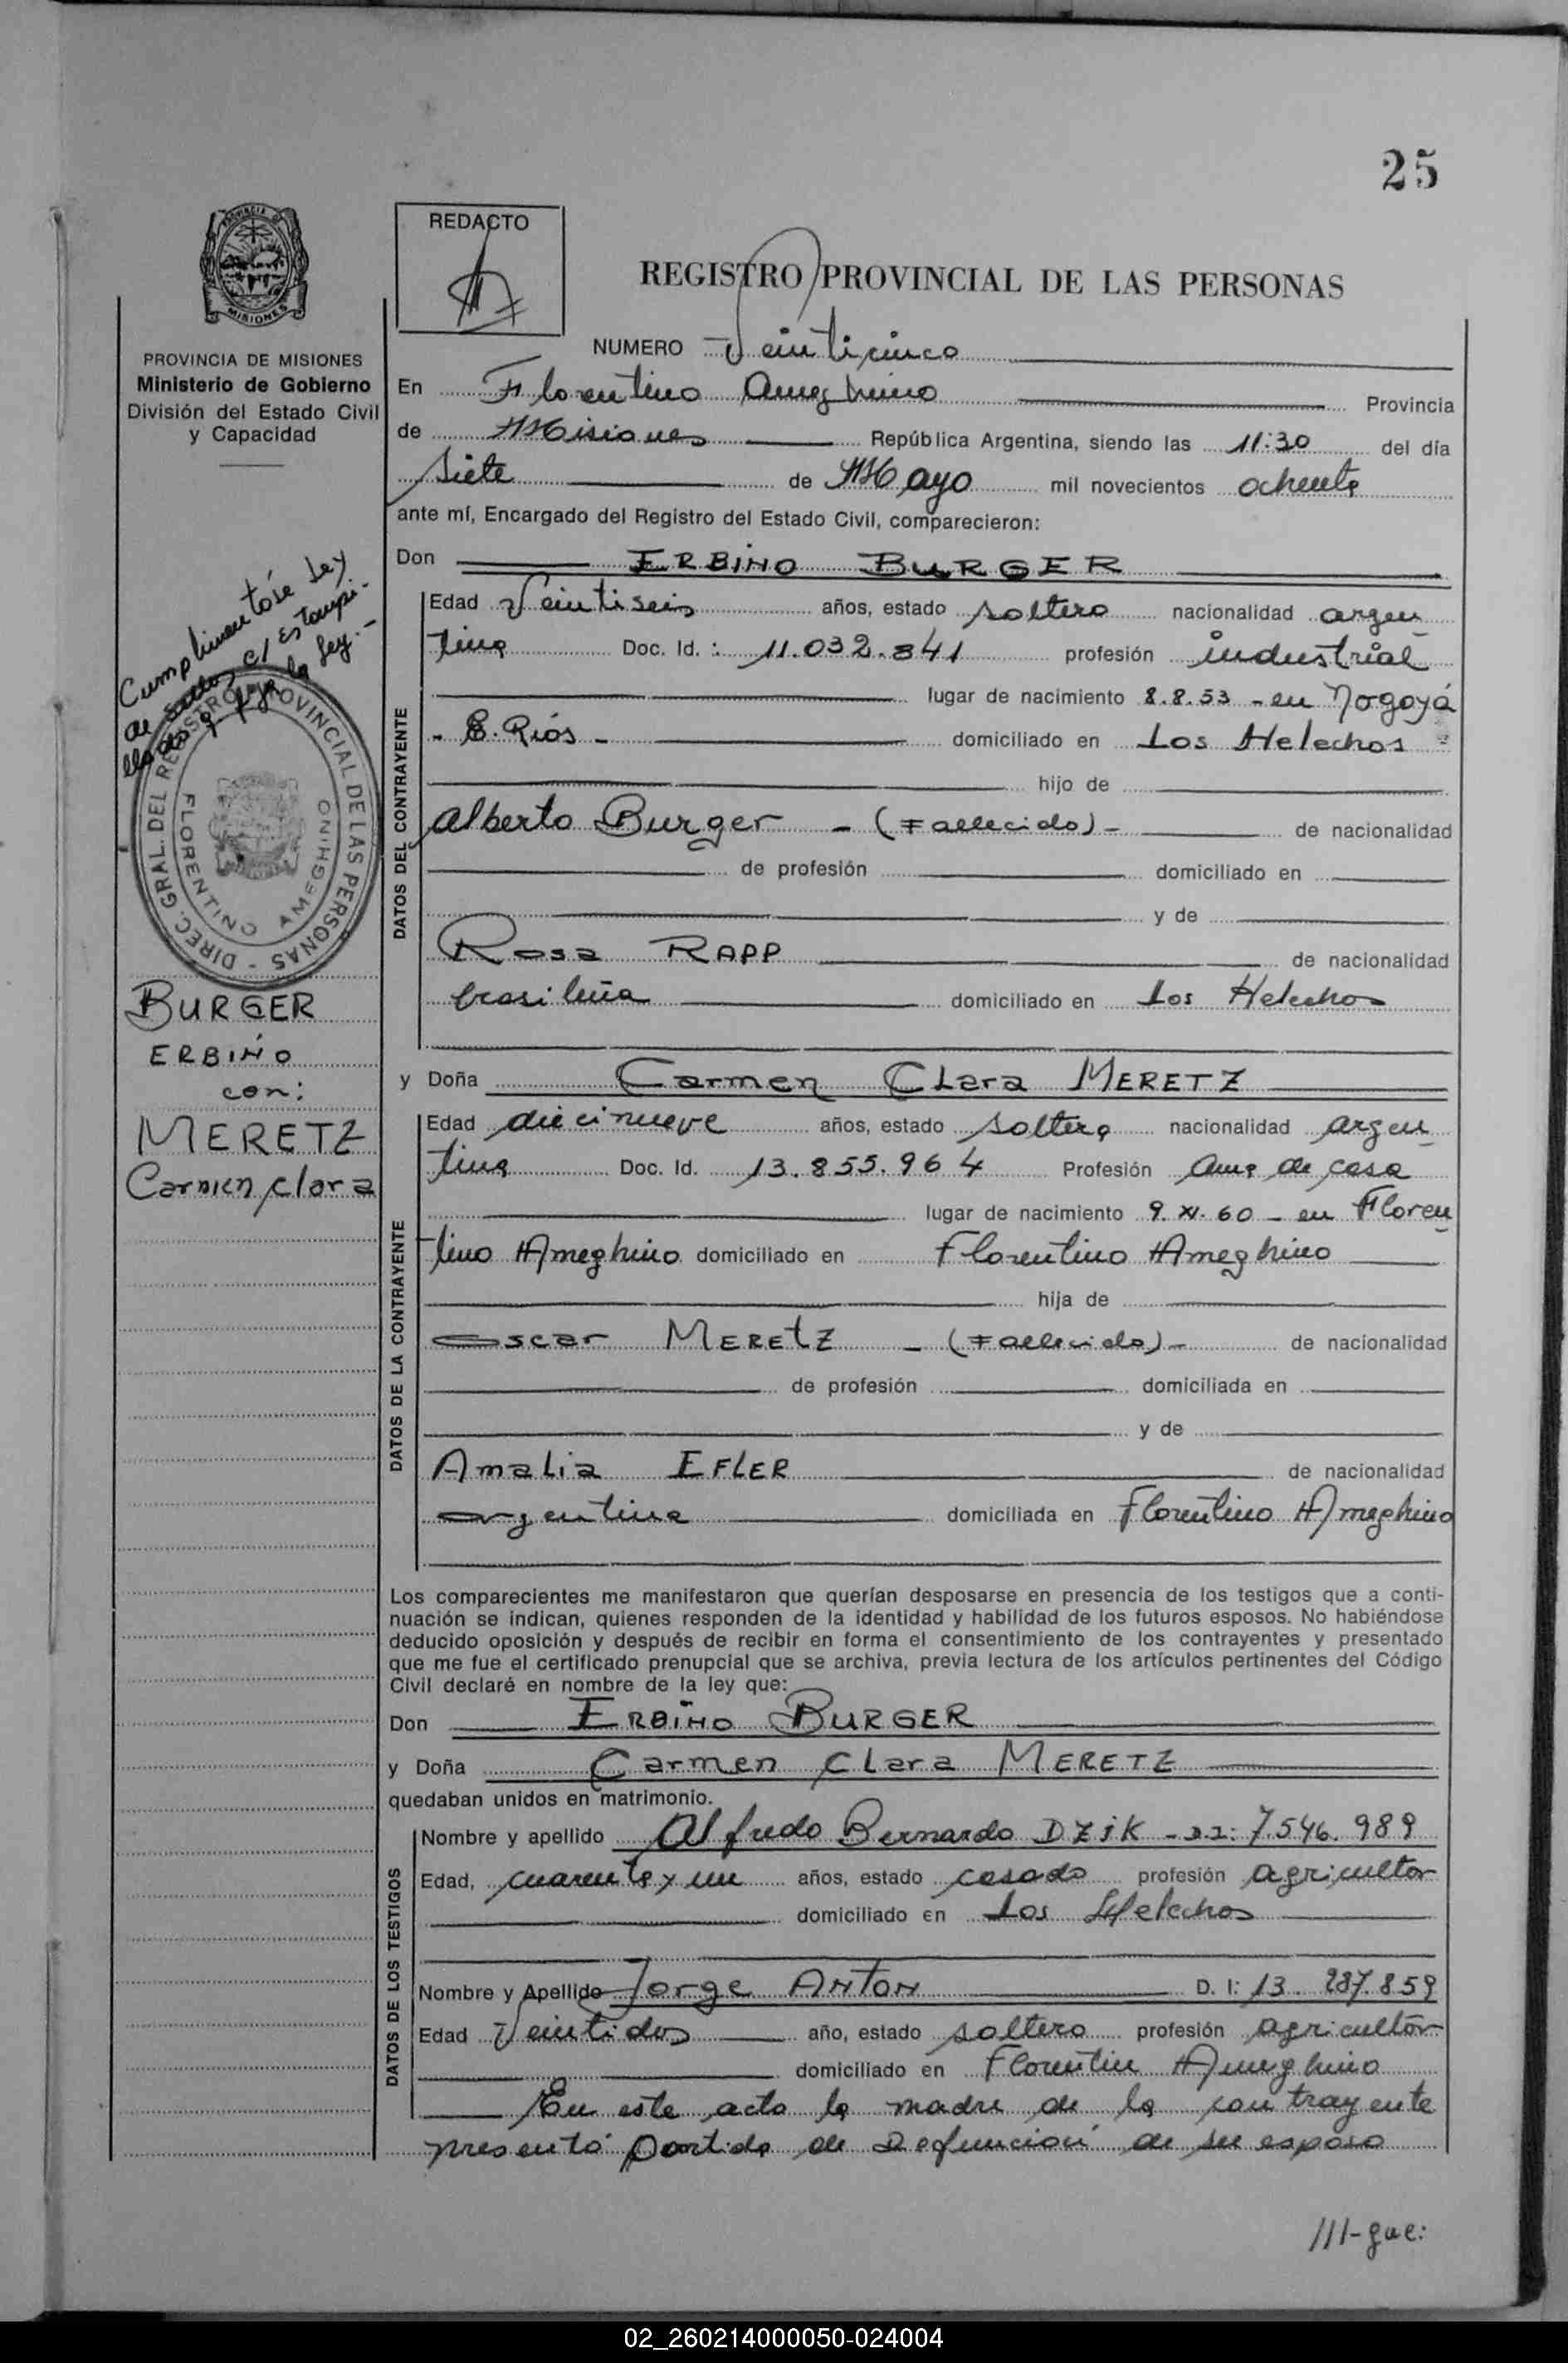 25
REDACTO
REGISTRO PROVINCIAL DE LAS PERSONAS
NUMERO Veinticinco
PROVINCIA DE MISIONES
Ministerio de Gobierno
División del Estado Civil
y Capacidad
En Florentino Ameghino Provincia
de Misiones República Argentina, siendo las 11:30 del día
Siete de Mayo mil novecientos ochenta
ante mí, Encargado del Registro del Estado Civil, comparecieron:
Don ERBINO BURGER
Edad Veintiseis años, estado soltero nacionalidad argen
tina Doc. Id. : 11.032.841 profesión industrial
lugar de nacimiento 8.8.53 - en Nogoyá
- E. Ríos - domiciliado en Los Helechos
hijo de
Alberto Burger - (Fallecido) - de nacionalidad
de profesión domiciliado en
y de
Rosa RAPP de nacionalidad
brasileña domiciliado en Los Helechos
DATOS DEL CONTRAYENTE
Cumplimentóse Ley
de sellos c/ estampi-
llas q fija la ley.-
DIREC. GRAL. DEL REGISTRO PROVINCIAL DE LAS PERSONAS -
FLORENTINO AMEGHINO
BURGER
ERBINO
con:
MERETZ
Carmen Clara
y Doña Carmen Clara MERETZ
Edad diecinueve años, estado soltera nacionalidad argen
tina Doc. Id. 13.855.964 Profesión Ama de casa
lugar de nacimiento 9. XI. 60 - en Floren
tino Ameghino domiciliado en Florentino Ameghino
hija de
Oscar MERETZ - (Fallecido) - de nacionalidad
de profesión domiciliada en
y de
Amalia EFLER de nacionalidad
argentina domiciliada en Florentino Ameghino
DATOS DE LA CONTRAYENTE
Los comparecientes me manifestaron que querían desposarse en presencia de los testigos que a conti-
nuación se indican, quienes responden de la identidad y habilidad de los futuros esposos. No habiéndose
deducido oposición y después de recibir en forma el consentimiento de los contrayentes y presentado
que me fue el certificado prenupcial que se archiva, previa lectura de los artículos pertinentes del Código
Civil declaré en nombre de la ley que:
Don ERBINO BURGER
y Doña Carmen Clara MERETZ
quedaban unidos en matrimonio.
Nombre y apellido Alfredo Bernardo DZIK - D.I: 7.546.989
Edad, cuarenta y un años, estado casado profesión agricultor
domiciliado en Los Helechos
Nombre y Apellido Jorge ANTON D. I: 13.287.859
Edad Veintidos año, estado soltero profesión agricultor
domiciliado en Florentin Ameghino
DATOS DE LOS TESTIGOS
En este acto la madre de la contrayente
presentó Partida de Defunción de su esposo
///-gue:
02_260214000050-024004